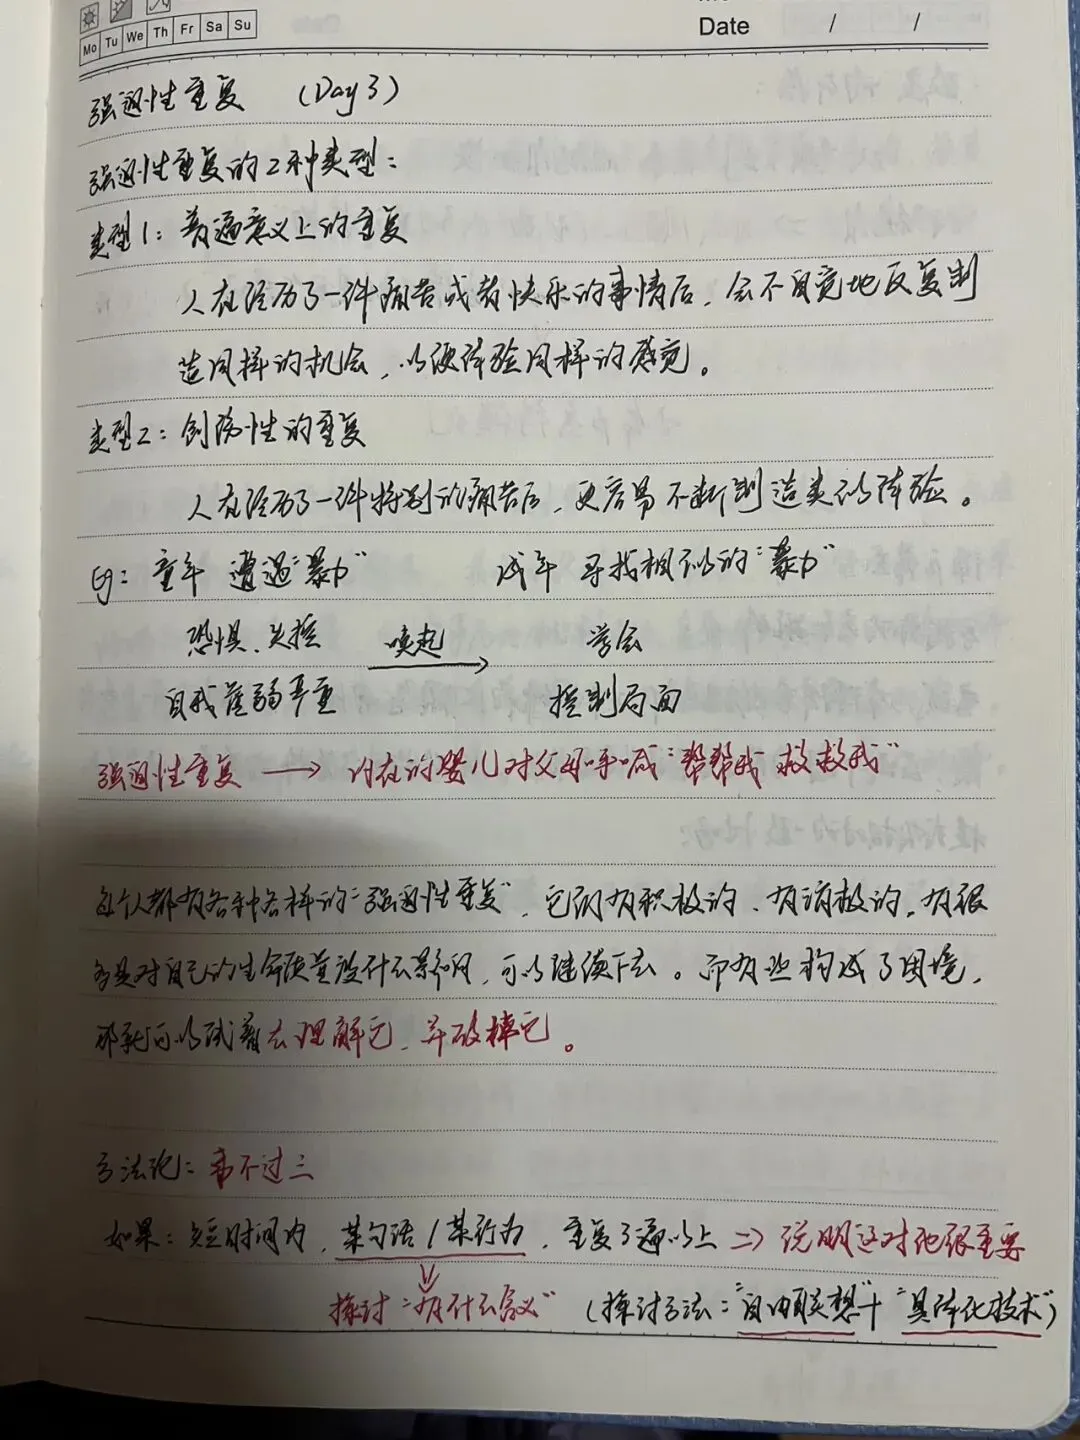 Mo Tu We Th Fr Sa Su
Date / /
强迫性重复 (Day 3)
强迫性重复的2种类型：
类型1：普遍意义上的重复
人在经历了一件痛苦或者快乐的事情后，会不自觉地反复制
造同样的机会，以便体验同样的感觉。
类型2：创伤性的重复
人在经历了一件特别的痛苦后，更容易不断制造类似体验。
eg：童年 遭遇“暴力” 成年 寻找相似的“暴力”
恐惧、失控 唤起 学会
自我虚弱严重 控制局面
强迫性重复 → 内在的婴儿对父母呼喊“帮帮我 救救我”
每个人都有各种各样的“强迫性重复”，它们有积极的、有消极的，有很
多是对自己的生命质量没什么影响，可以继续下去。而有些构成了困境，
那就可以试着去理解它，并破掉它。
方法论：事不过三
如果：短时间内，某句话/某行为，重复3遍以上 => 说明这对他很重要
探讨“有什么含义” (探讨方法：“自由联想”+“具体化技术”)